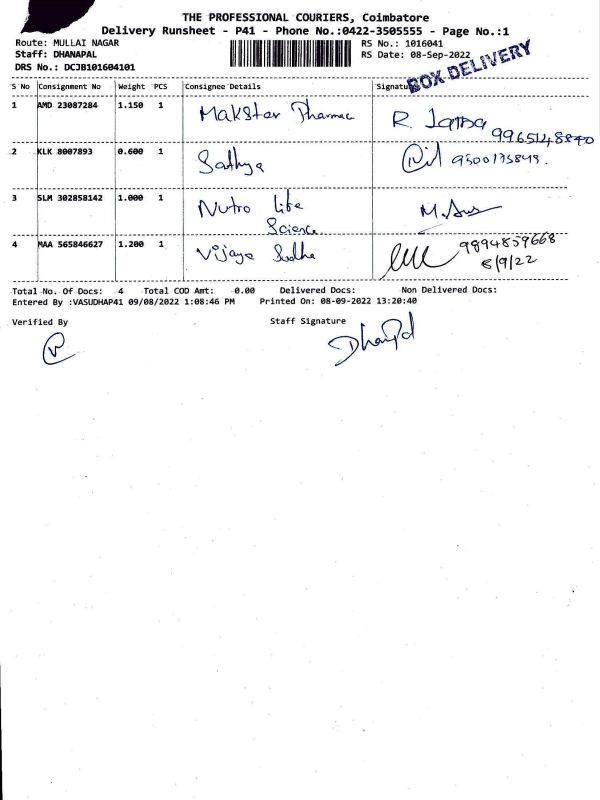 THE PROFESSIONAL COURIERS, Coimbatore
Delivery Runsheet - P41 - Phone No.:0422-3505555 - Page No.:1
Route: MULLAI NAGAR RS No.: 1016041
Staff: DHANAPAL RS Date: 08-Sep-2022
DRS No.: DCJB101604101
BOX DELIVERY
S No Consignment No Weight PCS Consignee Details Signature
1 AMD 23087284 1.150 1 Makstar Pharmac R.
2 KLK 8007893 0.600 1 Sathya
3 SLM 302858142 1.000 1 Nutro life
Science
4 MAA 565846627 1.200 1 Vijaya Sudha 9894859668
8/9/22
Total No. Of Docs: 4 Total COD Amt: 0.00 Delivered Docs: Non Delivered Docs:
Entered By :VASUDHAP41 09/08/2022 1:08:46 PM Printed On: 08-09-2022 13:20:40
Verified By Staff Signature